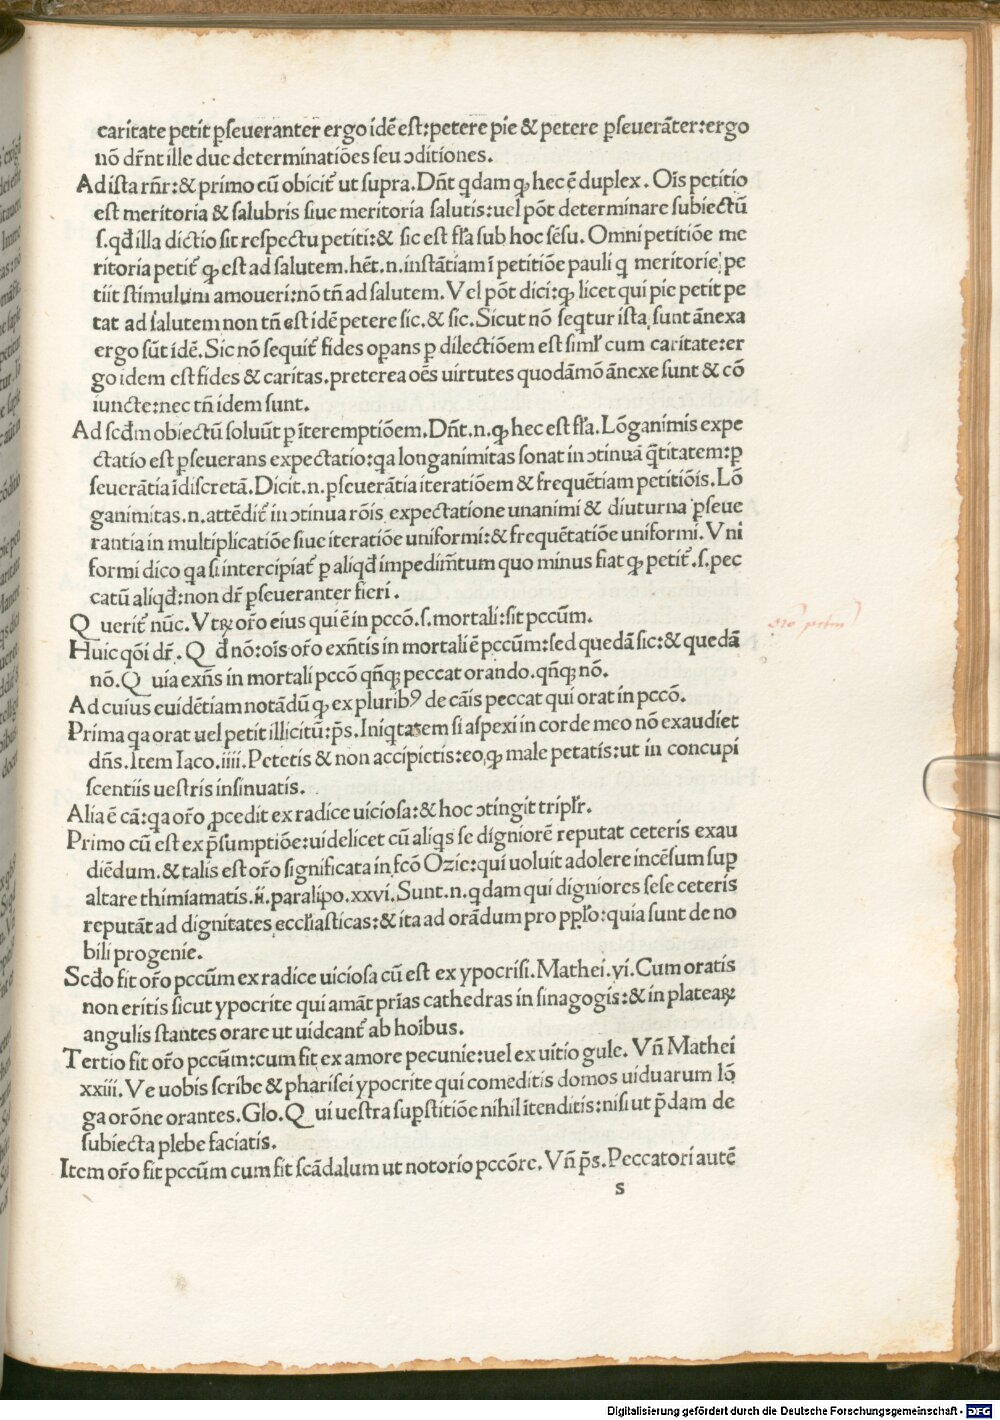 caritate petit ꝑseueranter ergo idē est:petere pie & petere ꝑseuerāter:ergo
nō dr̄nt ille due determinatiōes seu ↄditiones.
Ad ista rn̄r:& primo cū obicit᷑ ut supra.Dn̄t qdam ꝙ hec ē duplex. Oīs petitio
est meritoria & salubris siue meritoria salutis:uel pōt determinare subiectū
s.qđ illa dictio sit respectu petiti:& sic est fl̄a sub hoc sēsu. Omni petitiōe me
ritoria petit᷑ ꝙ est ad salutem.hēt.n.instātiam ī petitiōe pauli q meritorie pe
tiit stimulum amoueri:nō tn̄ ad salutem. Vel pōt dici:ꝙ licet qui pie petit pe
tat ad salutem non tn̄ est idē petere sic.& sic. Sicut nō seqtur ista sunt ānexa
ergo sūt idē.Sic nō sequit᷑ fides opans ꝑ dilectiōem est siml̄ cum caritate:er
go idem est fides & caritas.preterea oēs uirtutes quodāmō ānexe sunt & cō
iuncte:nec tn̄ idem sunt.
Ad scđm obiectū soluūt ꝑ īteremptiōem.Dn̄t.n.ꝙ hec est fl̄a.Lōganimis expe
ctatio est ꝑseuerans expectatio:qa longanimitas sonat in ↄtinuā q̄titatem:ꝑ
seuerātia īdiscretā.Dicit.n.ꝑseuerātia iteratiōem & frequētiam petitiōis.Lō
ganimitas.n.attēdit᷑ in ↄtinua rōis expectatione unanimi & diuturna ꝑseue
rantia in multiplicatiōe siue iteratiōe uniformi:& frequētatiōe uniformi.Vni
formi dico qa si intercipiat᷑ ꝑ aliqđ impedim̄tum quo minus fiat ꝙ petit᷑.s.pec
catū aliqđ:non dr̄ ꝑseueranter fieri.
Querit᷑ nūc.Vtꝝ or̄o eius qui ē in pccō.s.mortali:sit pccūm.
Huic qōi dr̄.Qđ nō:oīs or̄o exn̄tis in mortali ē pccūm:sed quedā sic:& quedā
nō.Quia exn̄s in mortali pccō qn̄qꝫ peccat orando.qn̄qꝫ nō.
Ad cuius euidētiam notādū ꝙ ex pluribꝰ de cāis peccat qui orat in pccō.
Prima qa orat uel petit illicitū:p̄s.Iniqtatem si aspexi in corde meo nō exaudiet
dn̄s.Item Iaco.iiii.Petetis & non accipietis:eo ꝙ male petatis:ut in concupi
scentiis uestris insinuatis.
Alia ē cā:qa or̄o ꝓcedit ex radice uiciosa:& hoc ↄtingit tripl̄r.
Primo cū est ex p̄sumptiōe:uidelicet cū aliqs se digniorē reputat ceteris exau
diēdum.& talis est or̄o significata in fcō Ozie:qui uoluit adolere incēsum suꝑ
altare thimiamatis.ii.paralipo.xxvi.Sunt.n.qdam qui digniores sese ceteris
reputāt ad dignitates eccl̄iasticas:& ita ad orādum pro ppl̄o:quia sunt de no
bili progenie.
Scđo fit or̄o pccūm ex radice uiciosa cū est ex ypocrisi.Mathei.vi.Cum oratis
non eritis sicut ypocrite qui amāt pr̄ias cathedras in sinagogis:& in plateaꝝ
angulis stantes orare ut uideant᷑ ab hoībus.
Tertio fit or̄o pccūm:cum fit ex amore pecunie:uel ex uitio gule. Vn̄ Mathei
xxiii.Ve uobis scribe & pharisei ypocrite qui comeditis domos uiduarum lō
ga orōne orantes.Glo.Qui uestra suꝑstitiōe nihil ītenditis:nisi ut p̄dam de
subiecta plebe faciatis.
Item or̄o fit pccūm cum fit scādalum ut notorio pccōre. Vn̄ p̄s.Peccatori autē
s
Digitalisierung gefördert durch die Deutsche Forschungsgemeinschaft - DFG